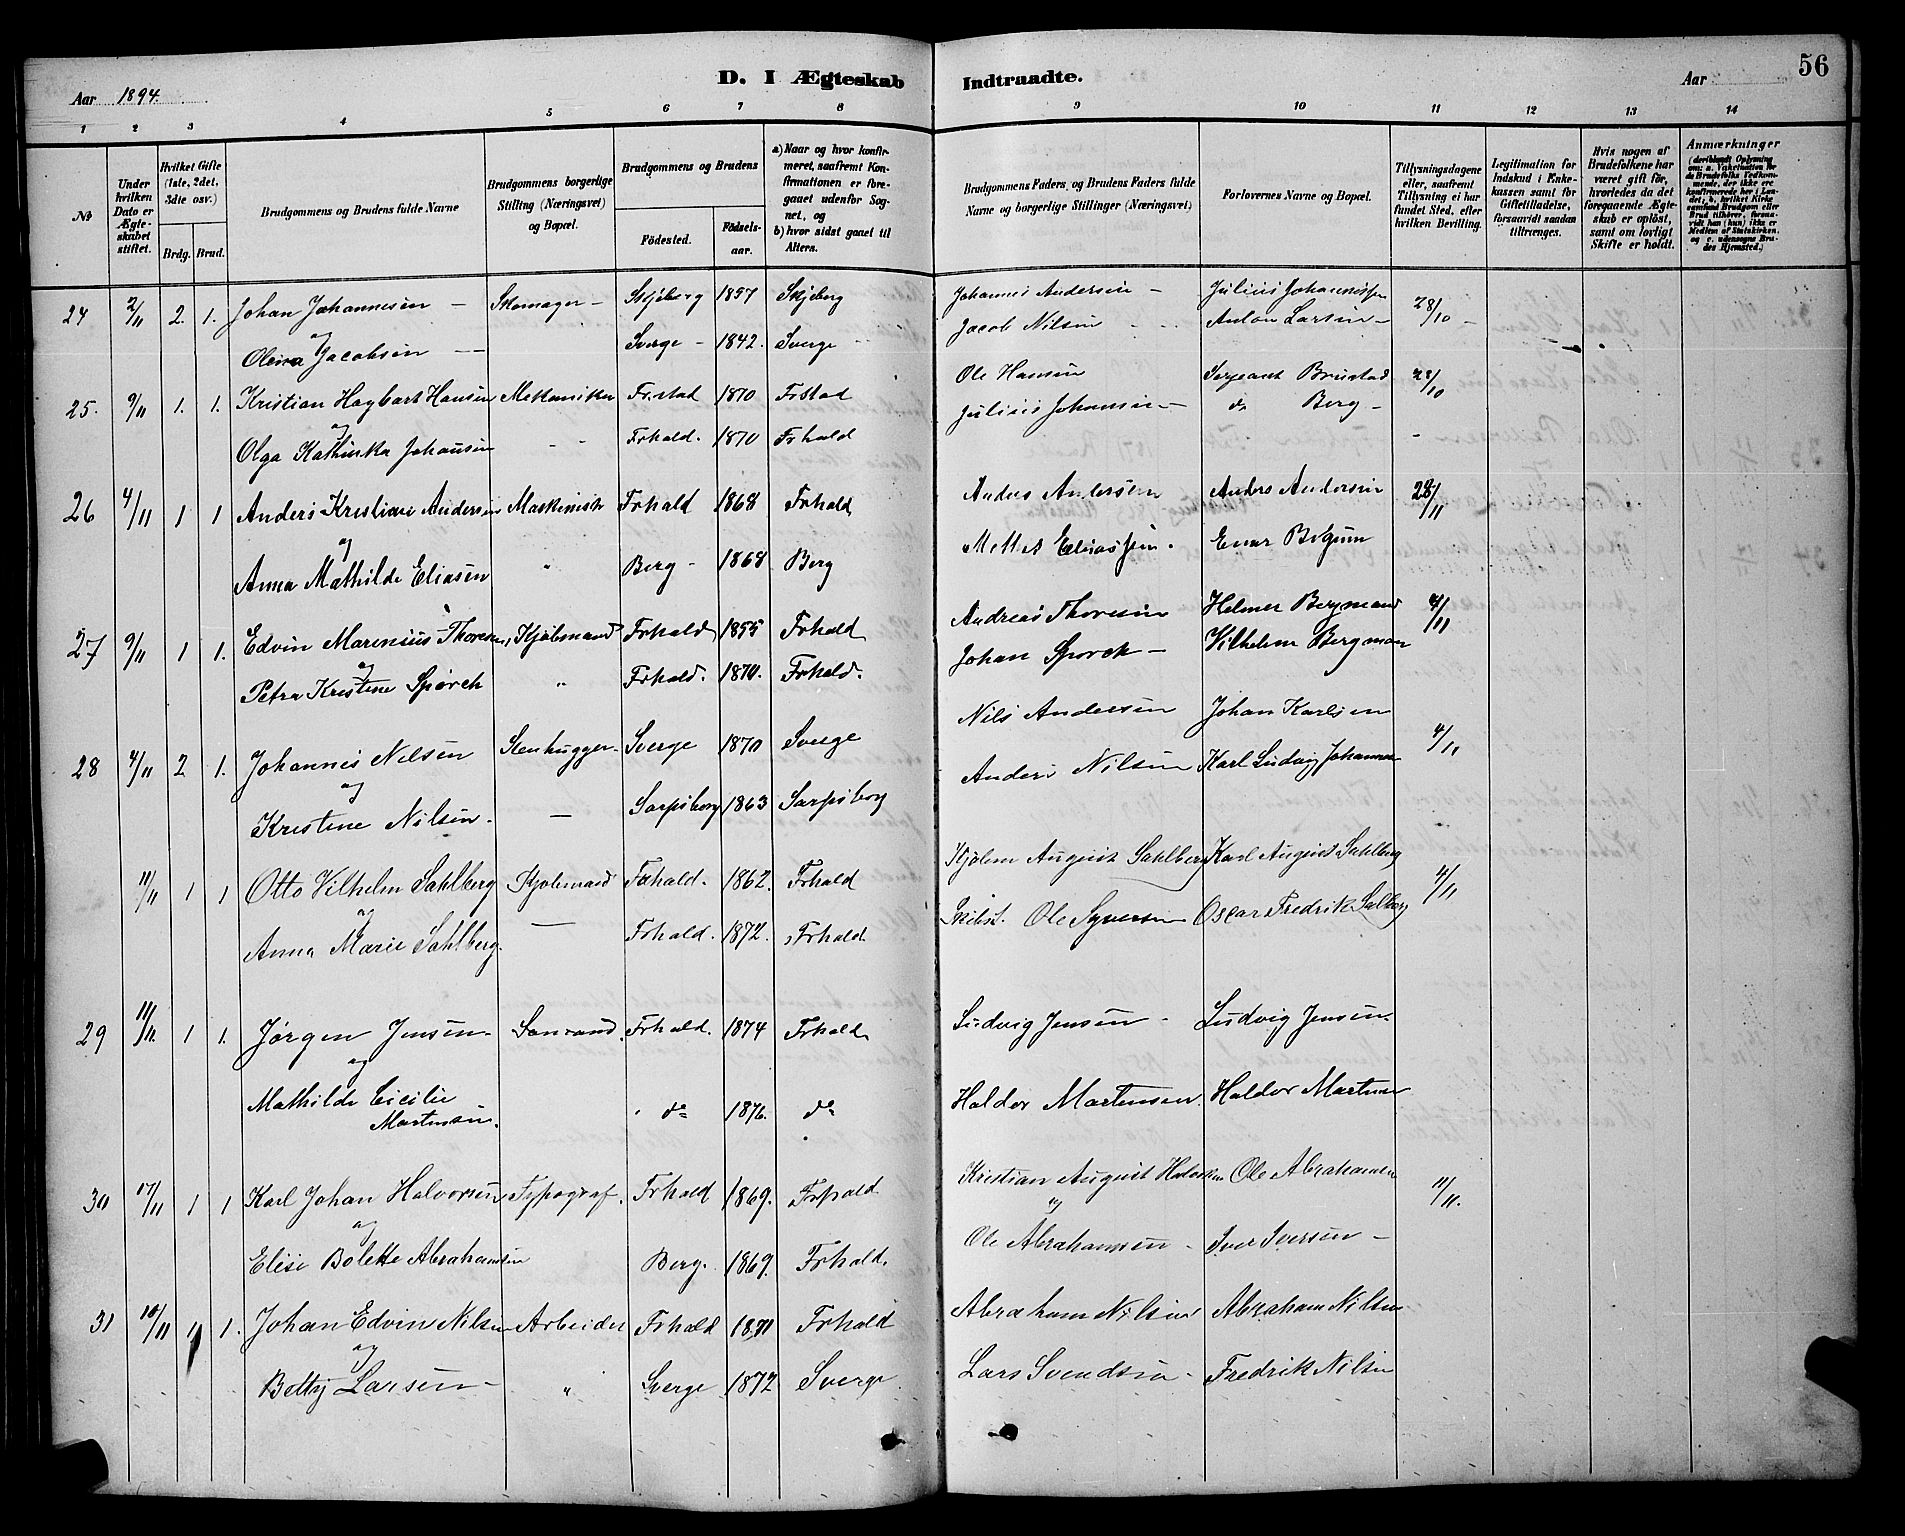 D. I Ægteskab Indtraadte.
56
Aar 1894.
Aar
1 2 3 4 5 6 7 8 9 10 11 12 13 14
No
Under hvilken Dato er Ægteskabet stiftet.
Hvilket Gifte (1ste, 2det, 3die osv.)
Brdg. Brud.
Brudgommens og Brudens fulde Navne
Brudgommens borgerlige Stilling (Næringsvei) og Bopæl.
Brudgommens og Brudens
Födested. Födselsaar.
a) Naar og hvor konfirmeret, saafremt Konfirmationen er foregaaet udenfor Sognet, og
b) hvor sidst gaaet til Alters.
Brudgommens Faders, og Brudens Faders fulde Navne og borgerlige Stillinger (Næringsvei)
Forlovernes Navne og Bopæl.
Tillysningsdagene eller, saafremt Tillysning ei har fundet Sted, efter hvilken Bevilling.
Legitimation for Indskud i Enkekassen samt for Giftetilladelse, forsaavidt saadan tiltrænges.
Hvis nogen af Brudefolkene har været gift för, hvorledes da det foregaaende Ægteskab er oplöst, samt om lovligt Skifte er holdt.
Anmærkninger
24 2/11 2. 1. Johan Johannesen – Skomager – Skjeberg 1857 Skjeberg Johannes Andersen – Julius Johannessen 28/10 –
og
Olena Jacobsen –– Sverge – 1842. Sverge Jacob Nilsen Anton Larsen –
25. 9/11 1. 1. Kristian Hagbart Hansen Mekaniker Frstad 1870 Frstad Ole Hansen Sergeant Brustad 28/10
og
Olga Kathinka Johansen Frhald. 1870 Frhald Julius Johansen – do Berg –
26 4/11 1 1 Anders Kristian Andersen Maskinist Frhald 1868 Frhald Anders Andersen Anders Andersen 28/11
og
Anna Mathilde Eliasen " Berg – 1868 Berg Eliassen. Einar
27 9/11 1 1. Edvin Marenius Thoresen, Kjøbmand Frhald 1855 Frhald Andreas Thoresen Helmer Bergmand 4/11
og
Petra Kristine Spørch " Frhald. 1870. Frhald. Johan Sporch – Vilhelm Bergman
28 4/11 2 1. Johannes Nilsen Stenhugger Sverge 1870 Sverge Nils Andersen Johan Karlsen 4/11
og
Kristine Nilsen. — Sarpsborg 1863 Sarpsborg Anders Nilsen Karl Ludvig Johannesen
11/11 1 1 Otto Vilhelm Sahlberg Kjøbmand Frhald. 1862. Frhald August Sahlberg Karl August Sahlberg 4/11
og
Anna Marie Sahlberg. — Frhald. 1872. Frhald. Skibst. Ole Syversen Oscar Fredrik Salberg
29 11/11. 1 1. Jørgen Jensen Frhald. 1874 Frhald Ludvig Jensen – Ludvig Jensen.
og
Mathilde Cicilie do 1876. do Haldor Martensen. Haldor Martensen
Martensen.
30 17/11 1 1 Karl Johan Halvorsen Typograf. Frhald 1869. Frhald Kristian August Ole Abrahamsen 11/11.
og
Elise Bolette Abrahamsen Berg. 1869. Frhald. Ole Abrahamsen – Iver Iversen –
31 10/11 1 1. Johan Edvin Nilsen Arbeider Frhald 1871 Frhald Abraham Nilsen Abraham Nilsen
og
Betty Larsen – " Sverge 1872 Sverge Lars Svendsen – Fredrik Nilsen